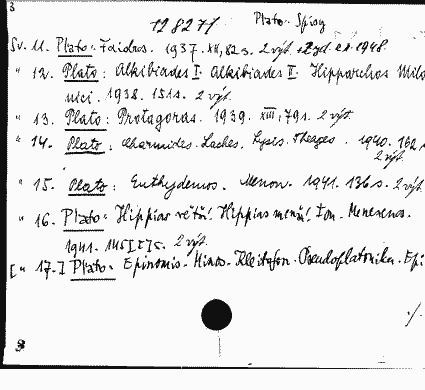 3
128271
Plato: Spisy
Sv. 11. Plato: Faidros. 1937. XII, 82 s. 2 výt.
" 12. Plato: Alkibiades I. Alkibiades II. Hipparchos Milo
vníci. 1938. 151 s. 2 výt.
" 13. Plato: Protagoras. 1939. XIII, 79 s. 2 výt.
" 14. Plato: Charmides. Laches. Lysis. Theages. 1940. 162 s.
2 výt.
" 15. Plato: Euthydemos. Menon. 1941. 136 s. 2 výt.
" 16. Plato: Hippias větší. Hippias menší. Ion. Menexenos.
1941. 115 [5] s. 2 výt.
[" 17.] Plato: Epinomis. Minos. Kleitofon. Pseudoplatonika. Epi
./.